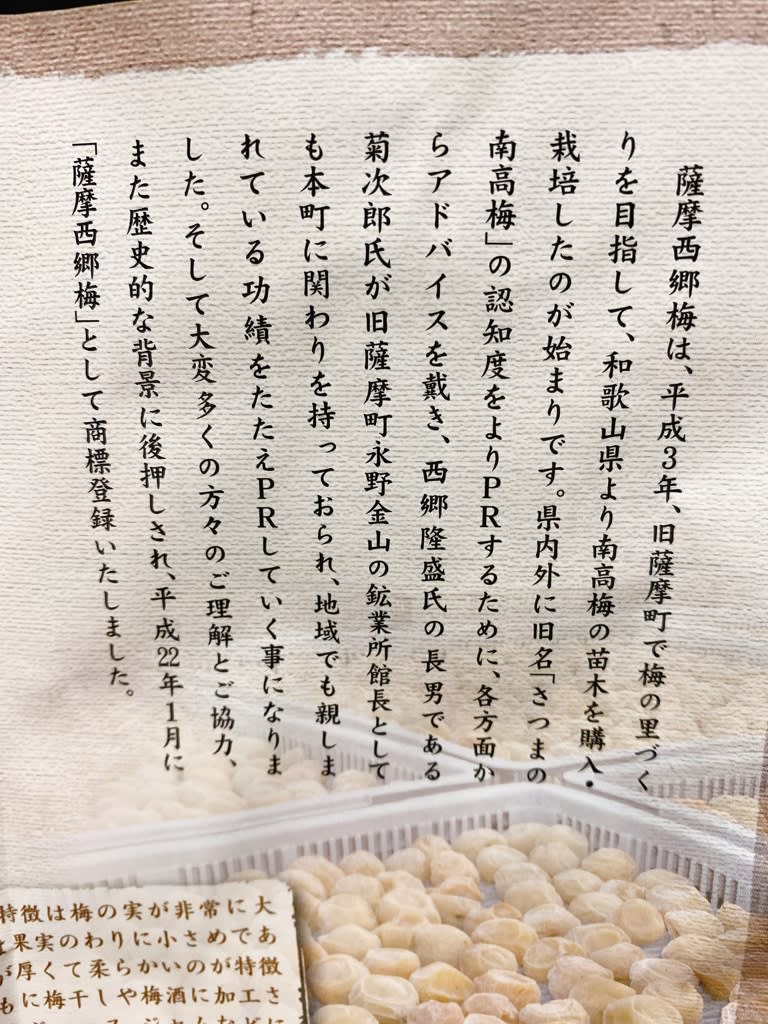 薩摩西郷梅は、平成3年、旧薩摩町で梅の里づく
りを目指して、和歌山県より南高梅の苗木を購入・
栽培したのが始まりです。県内外に旧名「さつまの
南高梅」の認知度をよりPRするために、各方面か
らアドバイスを戴き、西郷隆盛氏の長男である
菊次郎氏が旧薩摩町永野金山の鉱業所館長として
も本町に関わりを持っておられ、地域でも親しま
れている功績をたたえPRしていく事になりま
した。そして大変多くの方々のご理解とご協力、
また歴史的な背景に後押しされ、平成22年1月に
「薩摩西郷梅」として商標登録いたしました。
特徴は梅の実が非常に大
果実のわりに小さめであ
が厚くて柔らかいのが特徴
もに梅干しや梅酒に加工さ